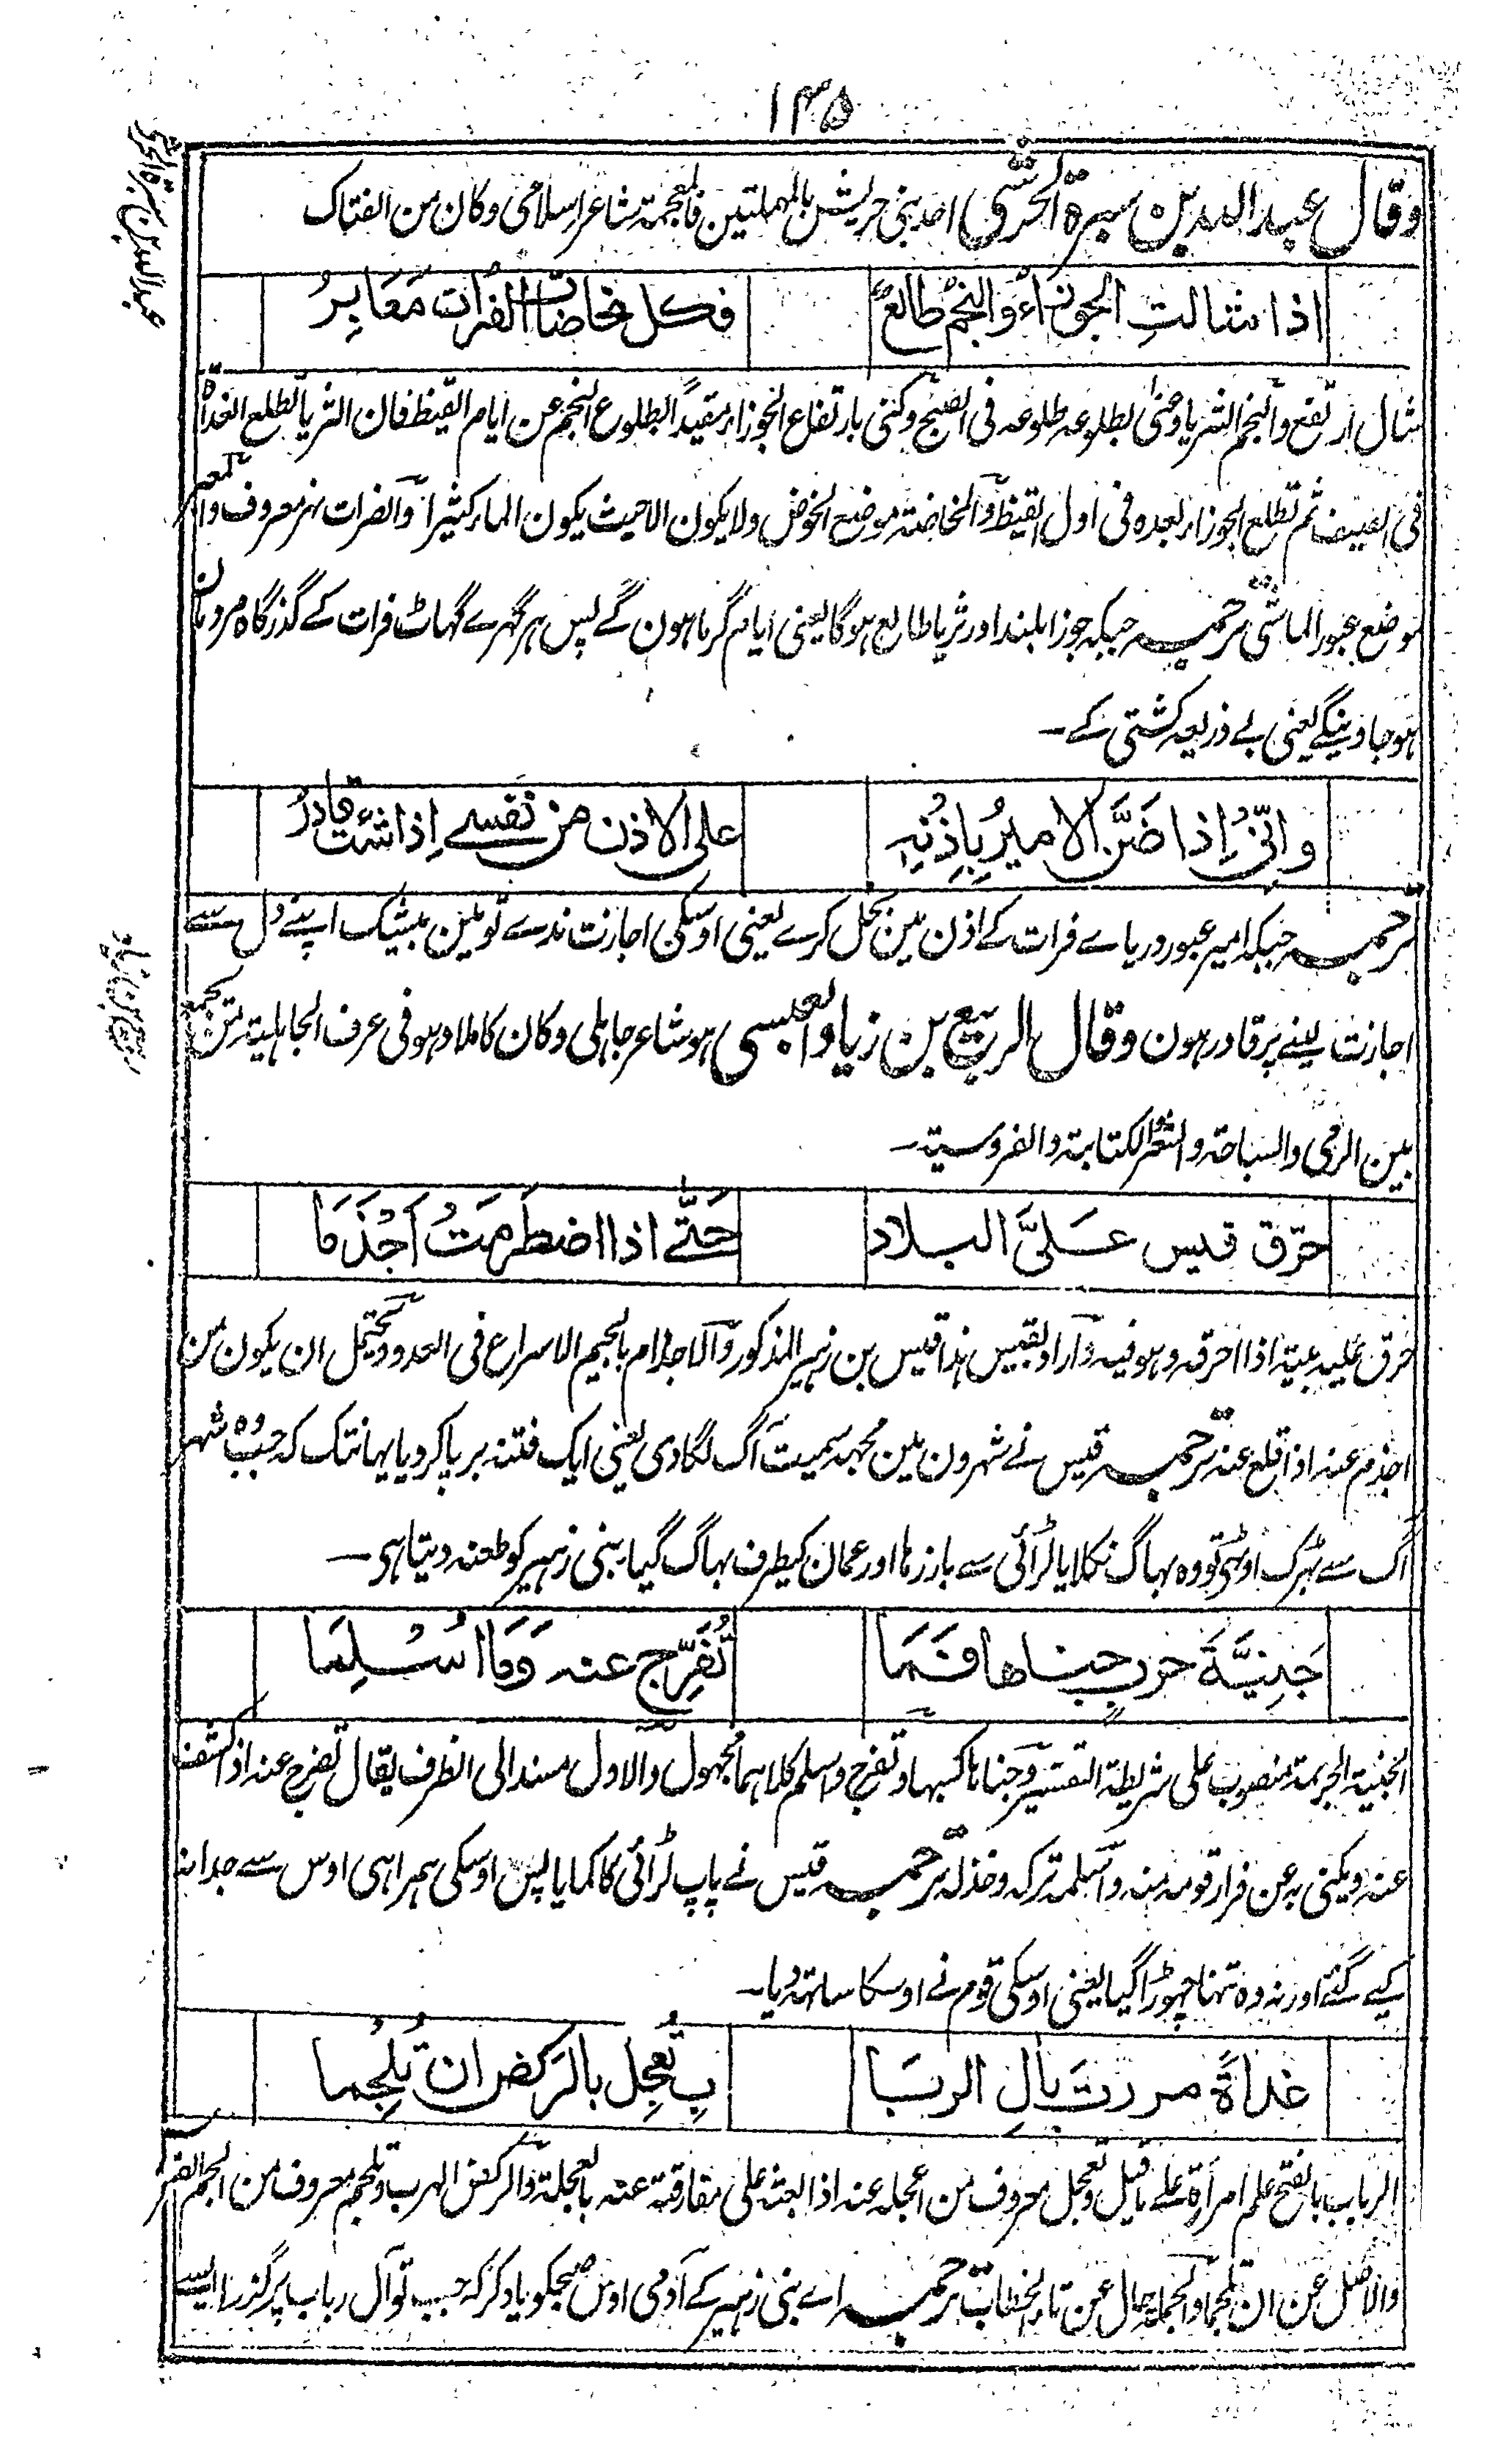 ۱۳۵
وقال عبد اللہ بن سبرۃ الحرشی احد بنی حریش بالمہملتین فالمعجمۃ شاعر اسلامی وکان من الفتاک
عبد اللہ بن سبرۃ الحرشی
اذا شالتِ الجوزاءُ والنجمُ طالعٌ فکل مخاضات الفرات مَعَابِرُ
شال ارتفع والنجم الثریا وعنی بطلوعہ طلوعہ فی الصبح وکنی بارتفاع الجوزاء مقیداً بطلوع النجم عن ایام القیظ فان الثریا تطلع الغداۃ
فی الصیف ثم تطلع الجوزاء بعدہ فی اول القیظ والمخاضۃ موضع الخوض ولا یکون الا حیث یکون الماء کثیرا والفرات نہر معروف والمعبر
موضع عبور الماشی ترجمہ جبکہ جوزا بلند اور ثریا طالع ہوگا یعنی ایام گرما ہون گے پس ہر گہرے گہاٹ فرات کے گذرگاہ مردمان
ہو جاوینگے یعنی بے ذریعہ کشتی کے۔
وانّی اِذا ضَنَّ الامیرُ بِاِذنِہِ علی الاذن من نفسے اِذا شئت قادرُ
ترجمہ جبکہ امیر عبور دریاے فرات کے اذن مین بخل کرے یعنی اوسکی اجازت ندے تو مین بیشک اپنے دل سے
اجازت لینے پر قادر ہون وقال الربیع بن زیاد العبسی ہو شاعر جاہلی وکان کاملا وہو فی عرف الجاہلیۃ من یجمع
ربیع بن زیاد
بین الرمی والسباحۃ والشعر الکتابۃ والفروسیۃ۔
حرّق قیس عَلیَّ البلاد حَتّٰے اذا اضطرمَتْ اَجْذَمَا
حرق علیہ بیتہ اذا احرقہ وہو فیہ واراد بقیس ہذا قیس بن زہیر المذکور والاجذام بالجیم الاسراع فی العدو ویحتمل ان یکون من
اجذم عنہ اذا قلع عنہ ترجمہ قیس نے شہرون مین مجہہ سمیت آگ لگادی یعنی ایک فتنہ برپا کردیا یہانتک کہ جب وہ شہر
آگ سے بہڑک اوٹہی تو وہ بہاگ نکلا یا لڑائی سے باز رہا اور عمان کیطرف بہاگ گیا۔ بنی زہیر کو طعنہ دیتا ہی۔
جَنِیَّۃَ حربٍ جناھا فَمَا تُفَرِّج عنہ وَمَا اُسْلِمَا
الجنیۃ الجریمۃ منصوب علی شریطۃ التفسیر وجناہا کسبہا وتفرج واسلم کلاہما مجہول والاول مسند الی الظرف یقال تفرج عنہ اذا کشف
عنہ ویکنی بہ عن فرار قومہ منہ واسلمہ ترکہ وخذلہ ترجمہ قیس نے پاپ لڑائی کا کمایا پس اوسکی ہمراہی اوس سے جدا نہ
کیے گئے اور نہ وہ تنہا چہوڑا گیا یعنی اوسکی قوم نے اوسکا ساتہہ دیا۔
غداۃَ مررتَ بآلِ الربَا بِ تُعجِل بالرَکض ان تُلجِما
الرباب بالفتح علم امرأۃ علے ما قیل وتعجل معروف من اعجلہ عنہ اذا بعثہ علی مفارقتہ عنہ بالعجلۃ والرکض الہرب وتلجم معروف من الجم الفرس
والاصل عن ان تلجما والجملۃ حال عن تاء الخطاب ترجمہ اے بنی زہیر کے آدمی اوس صبحکو یاد کر کہ جب تو آل رباب پر گذرا ایسے